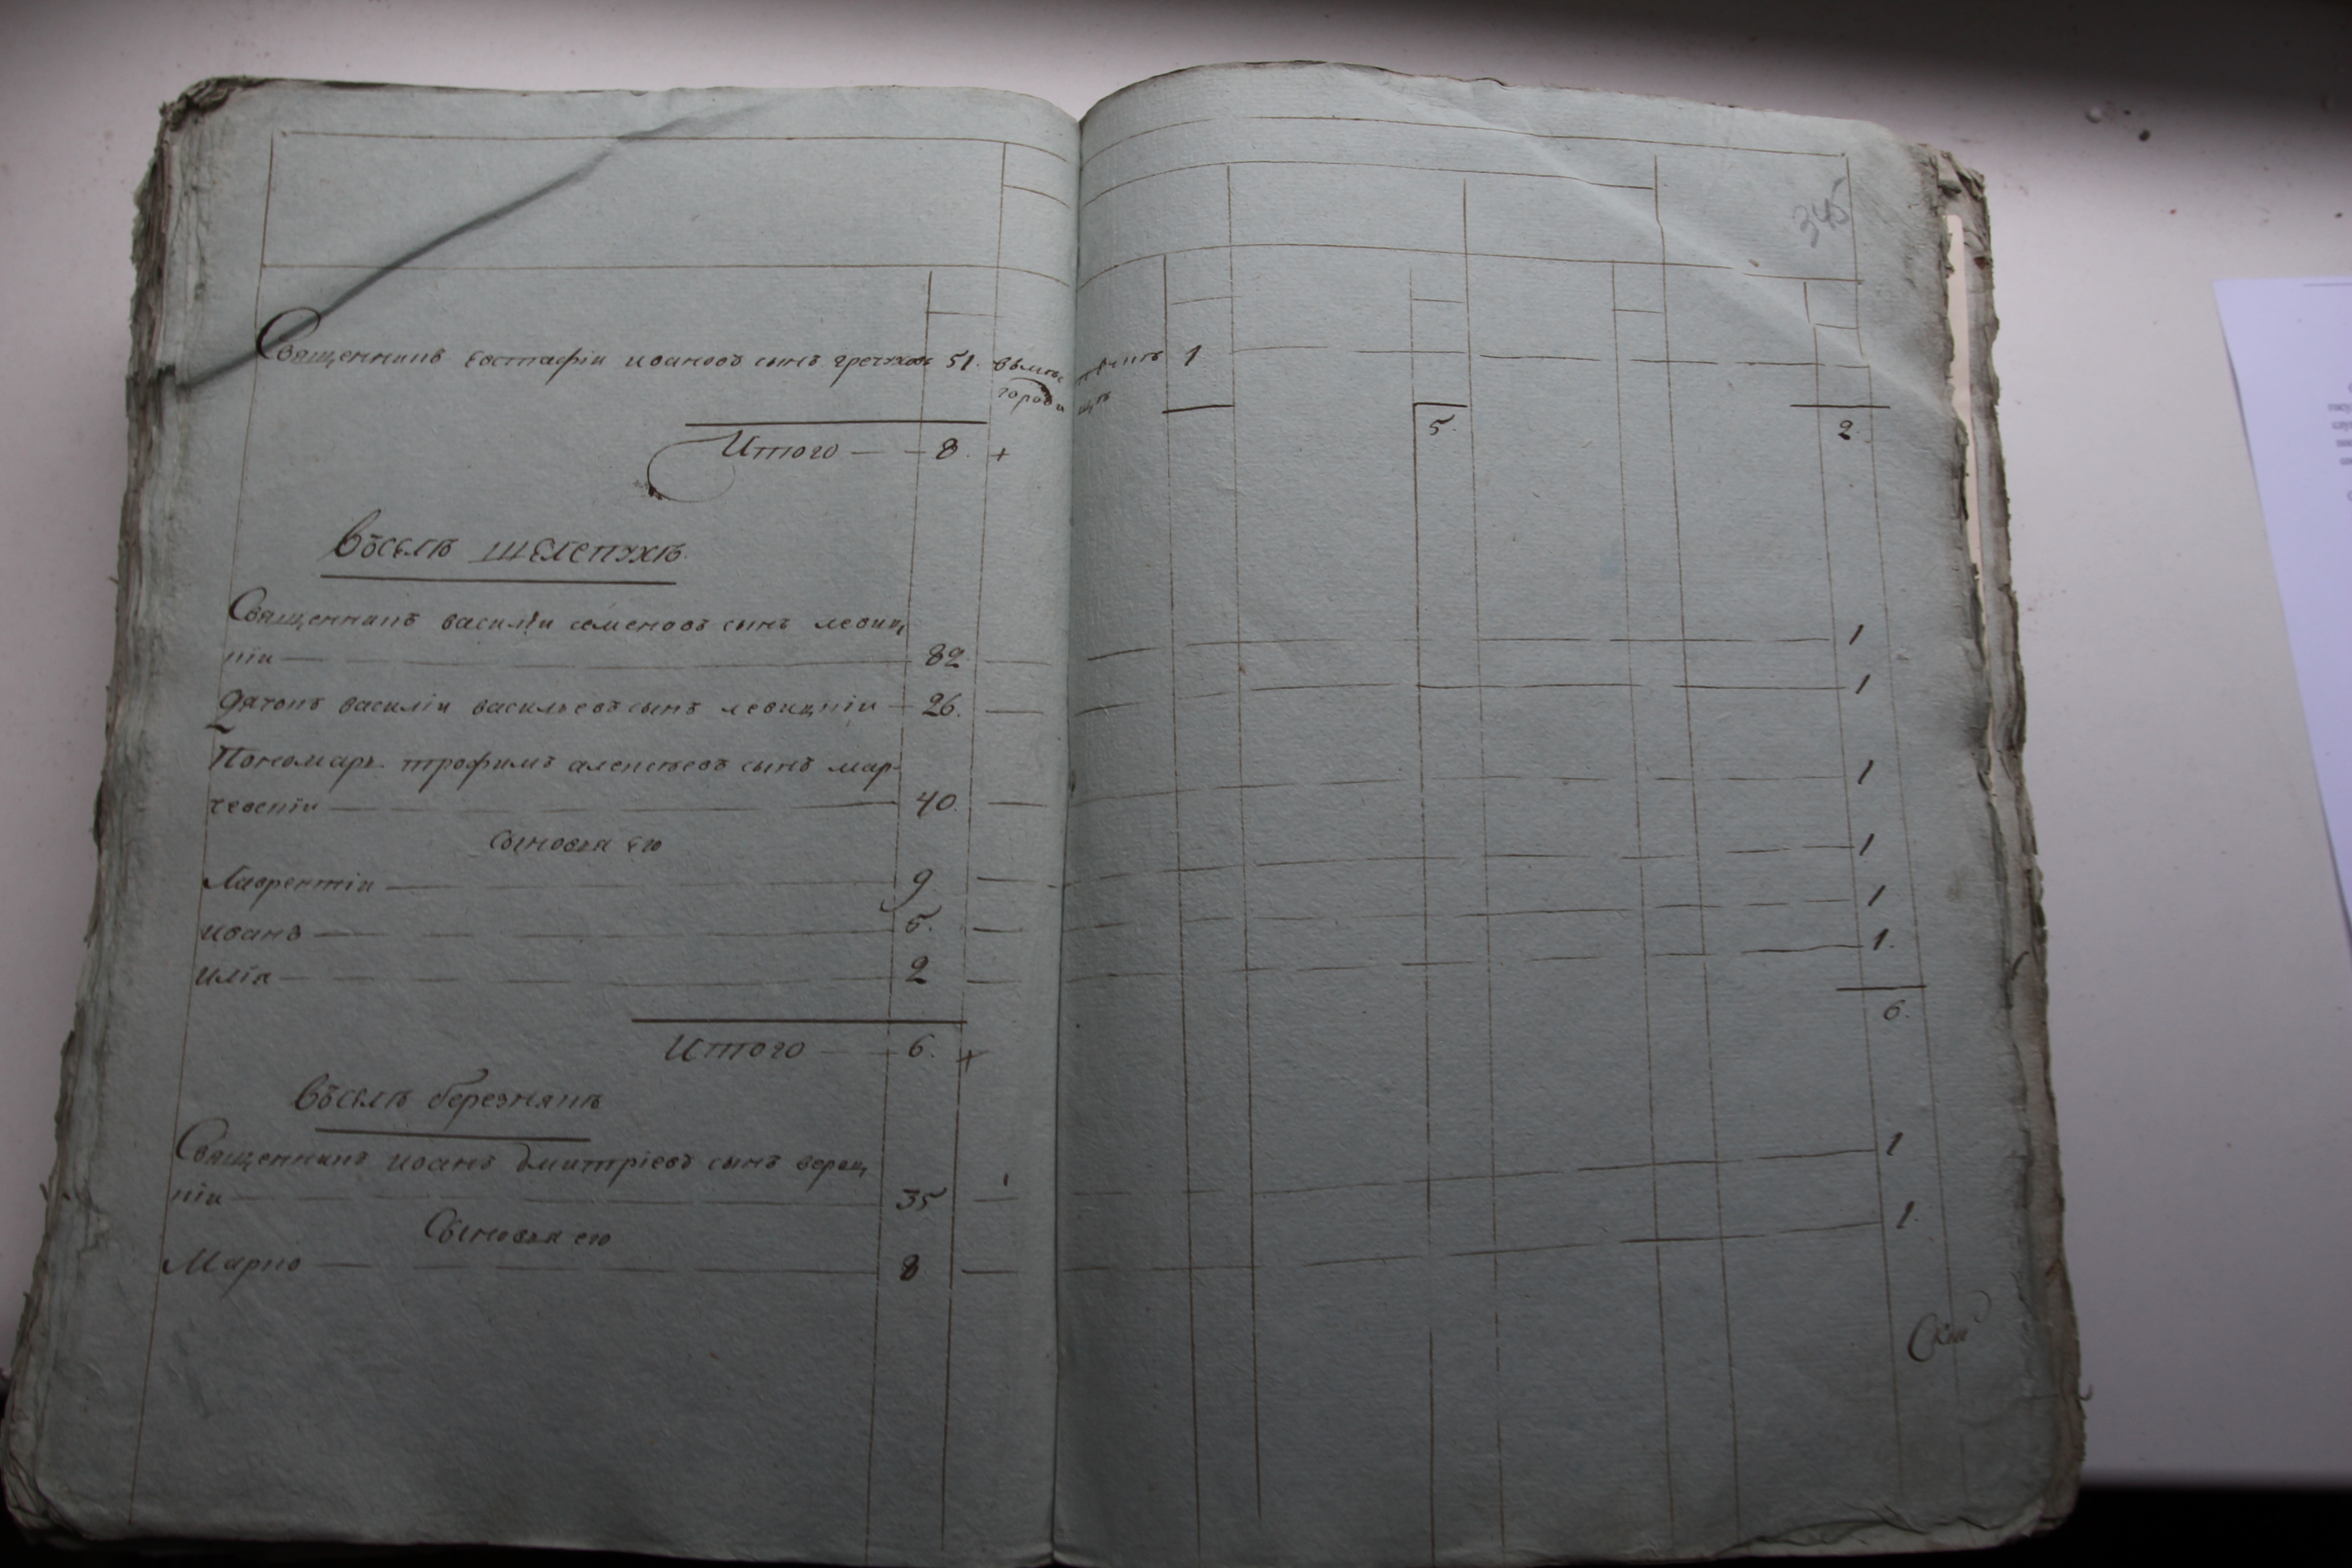 345
Священникъ Евстафіи ивановъ сынъ гречухов 51. 1
Итого 8. + 5. 2.
въселѣ шелепухѣ.
Священникъ василіи семеновъ сынъ левиц
кіи 82. 1
дячокъ василіи васильевъ сынъ левицкіи 26. 1
Пономарь трофимъ алексѣевъ сынъ мар-
чевскіи 40. 1
сыновья его
Лаврентіи 9 1
иванъ 5. 1
иліа 2 1.
6.
Итого 6. +
въселѣ березнякѣ
Священникъ иванъ дмитріевъ сынъ вериц
кіи 35 1
Сыновья его
Марко 8 1.